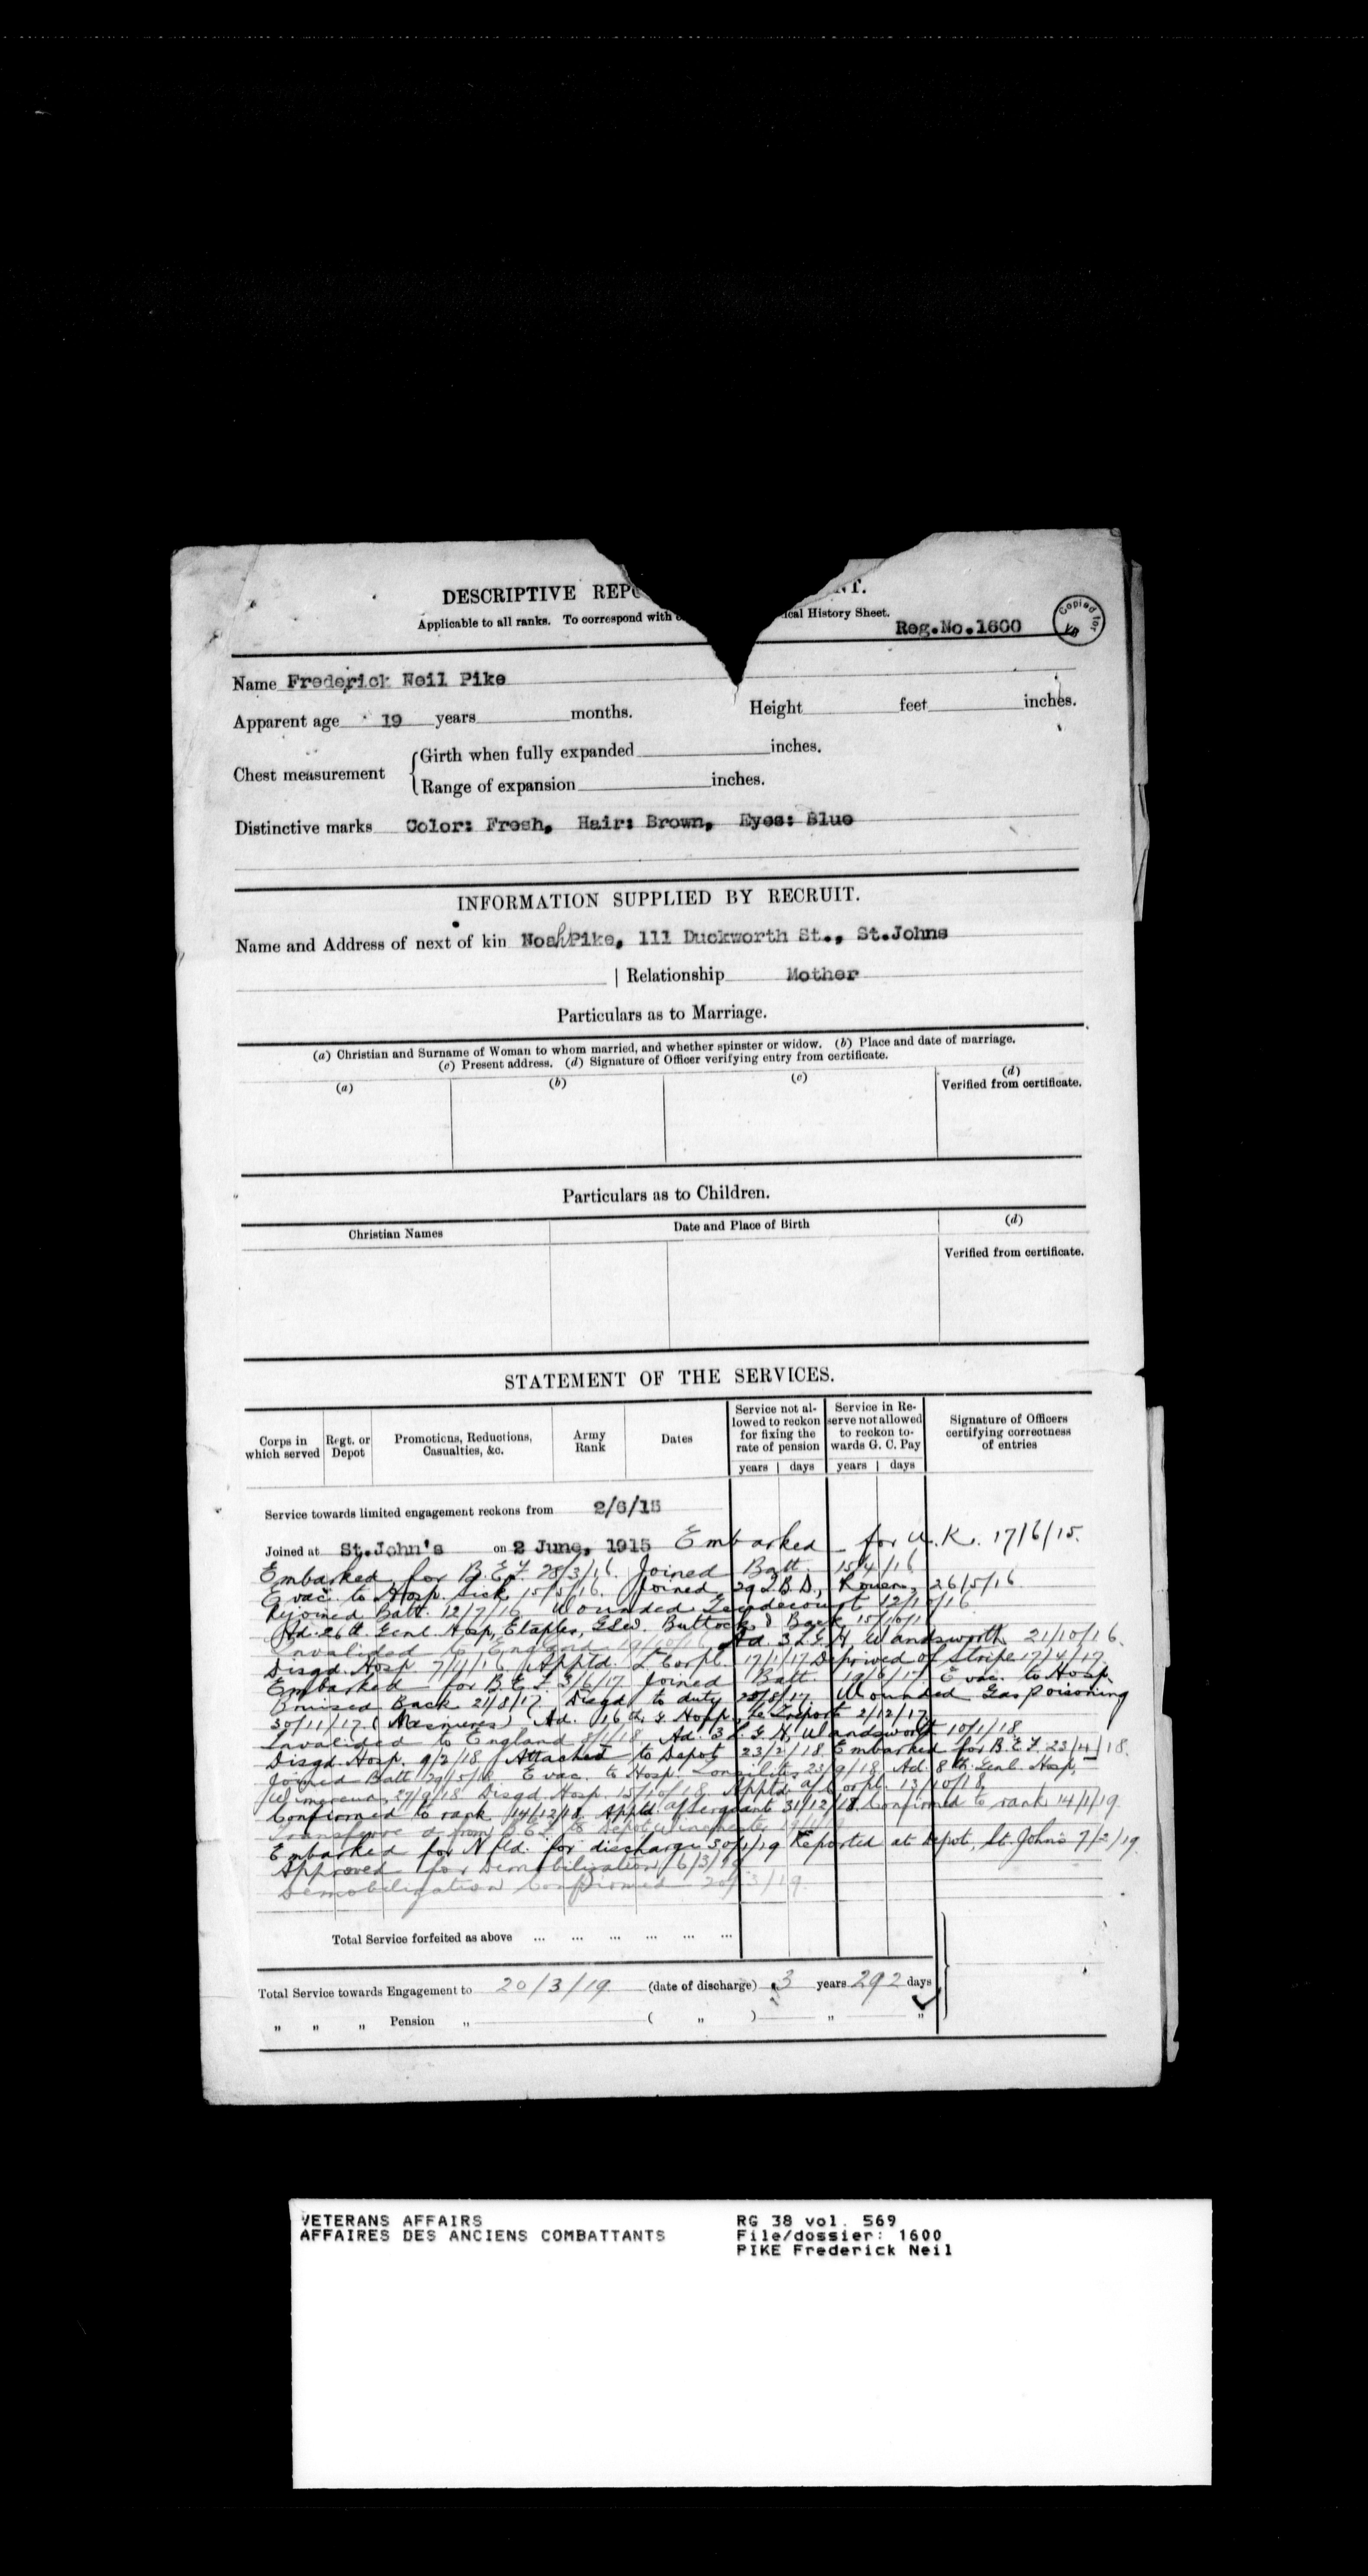 DESCRIPTIVE REPO NT.
Applicable to all ranks. To correspond with ical History Sheet.
Reg.No.1600
Copied for
Name Frederick Neil Pike
Apparent age 19 years months. Height feet inches.
Chest measurement
Girth when fully expanded inches.
Range of expansion inches.
Distinctive marks Color: Fresh, Hair: Brown, Eyes: Blue
INFORMATION SUPPLIED BY RECRUIT.
Name and Address of next of kin Noah Pike, 111 Duckworth St., St.Johns
Relationship Mother
Particulars as to Marriage.
(a) Christian and Surname of Woman to whom married, and whether spinster or widow. (b) Place and date of marriage.
(c) Present address. (d) Signature of Officer verifying entry from certificate.
(a) (b) (c) (d)
Verified from certificate.
Particulars as to Children.
Christian Names Date and Place of Birth (d)
Verified from certificate.
STATEMENT OF THE SERVICES.
Corps in which served
Regt. or Depot
Promotions, Reductions, Casualties, &c.
Army Rank
Dates
Service not allowed to reckon for fixing the rate of pension
Service in Reserve not allowed to reckon towards G. C. Pay
Signature of Officers certifying correctness of entries
years days years days
Service towards limited engagement reckons from 2/6/15
Joined at St.John's on 2 June, 1915 Embarked for U.K. 17/6/15.
Embarked for B.E.F. 28/3/16. Joined Batt. 15/4/16
Evac. to Hosp. Sick 15/5/16. Joined 29 I.B.D., Rouen, 26/5/16
Rejoined Batt. 12/7/16 Wounded Gueudecourt 12/10/16
Ad. 26th Genl. Hosp, Etaples, GSW. Buttocks & Back 15/10/1
Invalided to England 19/10/16 Ad. 3 L.G.H Wandsworth 21/10/16.
Disgd. Hosp 7/11/16 Apptd. L Corpl. 17/1/17 Deprived of Stripe 17/4/17.
Embarked for B.E.F. 3/6/17 Joined Batt. 19/6/17. Evac. to Hosp
Bruised Back 21/8/17. Disgd to duty 28/8/17. Wounded Gas Poisoning
30/11/17 (Masnieres) Ad. 16th G Hosp, Le Treport 2/12/17.
Invalided to England 8/1/18, Ad. 3 L.G.H, Wandsworth 10/1/18
Disgd. Hosp. 9/2/18 Attached to Depot 23/2/18. Embarked for B.E.F. 23/4/18.
Joined Batt 29/5/18 Evac. to Hosp. Tonsilitis 23/9/18 Ad. 8th Genl. Hosp,
27/9/18 Disgd. Hosp. 15/10/18 Apptd. a/Corpl. 13/10/18.
Confirmed to rank 14/12/18. Apptd. a/Sergeant 31/12/18. Confirmed to rank 14/1/19.
from B.E.F. to Depot Winchester
Embarked for Nfld. for discharge 30/1/19 Reported at Depot, St. John's 7/2/19.
Approved for Demobilization 6/3/19
Demobilization Confirmed 20/3/19.
Total Service forfeited as above ... ... ... ... ... ...
Total Service towards Engagement to 20/3/19. (date of discharge) 3 years 292 days
" " " Pension " ( " ) " "
VETERANS AFFAIRS RG 38 vol. 569
AFFAIRES DES ANCIENS COMBATTANTS File/dossier: 1600
PIKE Frederick Neil